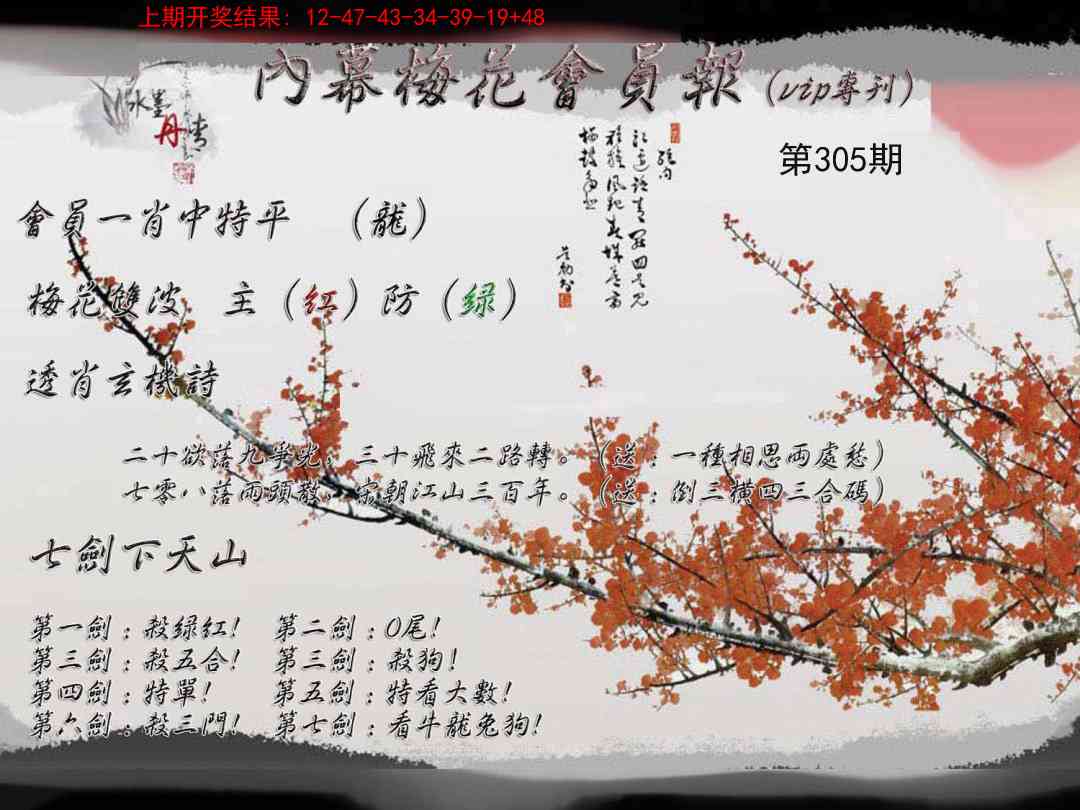 上期开奖结果: 12-47-43-34-39-19+48
內幕梅花會員報(vip專刊)
水墨
丹情
第305期
會員一肖中特平 (龍)
梅花雙波 主(红)防(绿)
透肖玄機詩
二十欲落九爭光,三十飛來二路轉。(送:一種相思兩處愁)
七零八落兩頭散,宋朝江山三百年。(送:倒三橫四三合碼)
七劍下天山
第一劍:殺緑紅! 第二劍:0尾!
第三劍:殺五合! 第三劍:殺狗!
第四劍:特單! 第五劍:特看大數!
第六劍:殺三門! 第七劍:看牛龍兔狗!